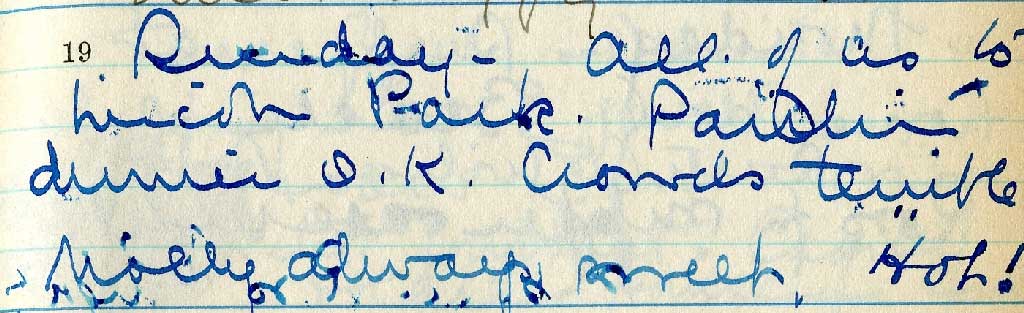 19 Sunday - All of us to
Lincoln Park. Pavilion
dinner O.K. Crowds terrible
Molly always sweet. Hot!